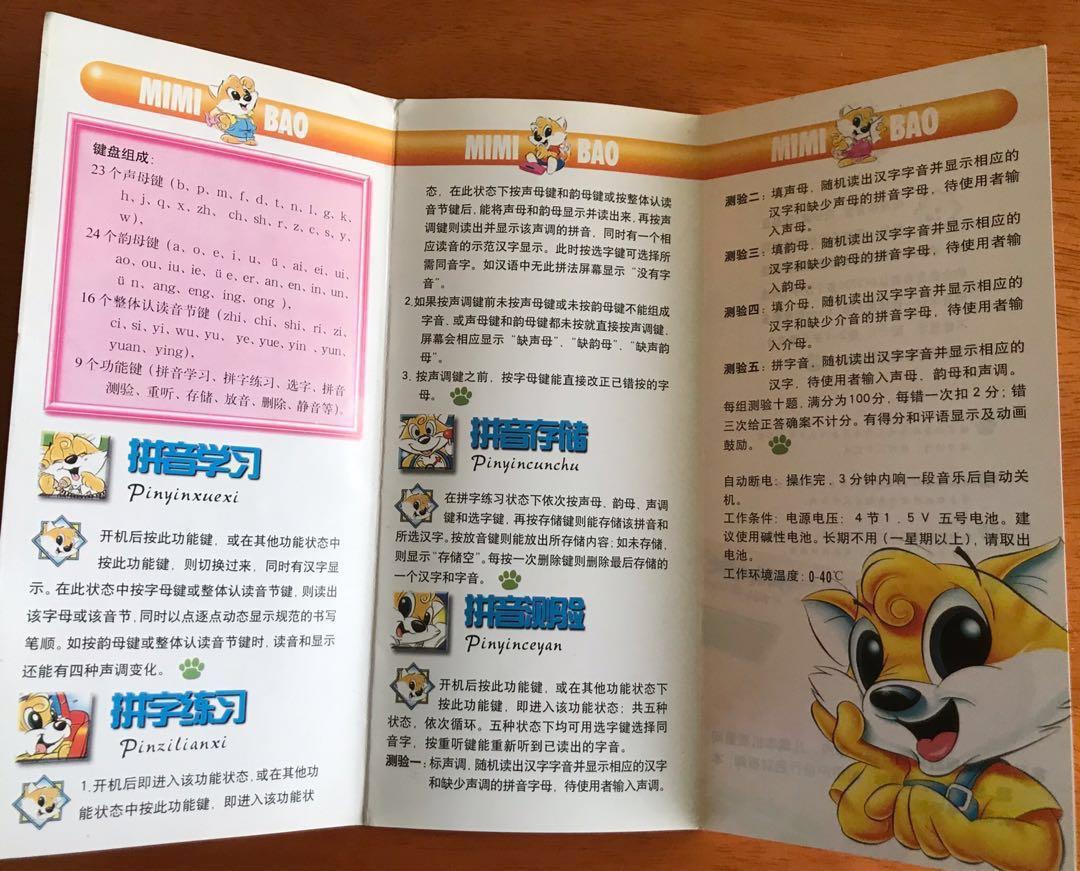 MIMI BAO
键盘组成：
23个声母键（b、p、m、f、d、t、n、l、g、k、
h、j、q、x、zh、ch、sh、r、z、c、s、y、
w)，
24个韵母键（a、o、e、i、u、ü、ai、ei、ui、
ao、ou、iu、ie、üe、er、an、en、in、un、
ün、ang、eng、ing、ong）、
16个整体认读音节键（zhi、chi、shi、ri、zi、
ci、si、yi、wu、yu、ye、yue、yin、yun、
yuan、ying)，
9个功能键（拼音学习、拼字练习、选字、拼音
测验、重听、存储、放音、删除、静音等)。
拼音学习
Pinyinxuexi
开机后按此功能键，或在其他功能状态中
按此功能键，则切换过来，同时有汉字显
示。在此状态中按字母键或整体认读音节键，则读出
该字母或该音节，同时以点逐点动态显示规范的书写
笔顺。如按韵母键或整体认读音节键时，读音和显示
还能有四种声调变化。
拼字练习
Pinzilianxi
1.开机后即进入该功能状态，或在其他功
能状态中按此功能键，即进入该功能状
MIMI BAO
态，在此状态下按声母键和韵母键或按整体认读
音节键后，能将声母和韵母显示并读出来，再按声
调键则读出并显示该声调的拼音，同时有一个相
应读音的示范汉字显示。此时按选字键可选择所
需同音字。如汉语中无此拼法屏幕显示“没有字
音”。
2.如果按声调键前未按声母键或未按韵母键不能组成
字音，或声母键和韵母键都未按就直接按声调键，
屏幕会相应显示“缺声母”、“缺韵母”、“缺声韵
母”。
3. 按声调键之前，按字母键能直接改正已错按的字
母。
拼音存储
Pinyincunchu
在拼字练习状态下依次按声母、韵母、声调
键和选字键，再按存储键则能存储该拼音和
所选汉字。按放音键则能放出所存储内容；如未存储，
则显示“存储空”。每按一次删除键则删除最后存储的
一个汉字和字音。
拼音测验
Pinyinceyan
开机后按此功能键，或在其他功能状态下
按此功能键，即进入该功能状态；共五种
状态，依次循环。五种状态下均可用选字键选择同
音字，按重听键能重新听到已读出的字音。
测验一：标声调，随机读出汉字字音并显示相应的汉字
和缺少声调的拼音字母，待使用者输入声调。
MIMI BAO
测验二：填声母，随机读出汉字字音并显示相应的
汉字和缺少声母的拼音字母，待使用者输
入声母。
测验三：填韵母，随机读出汉字字音并显示相应的
汉字和缺少韵母的拼音字母，待使用者输
入韵母。
测验四：填介母，随机读出汉字字音并显示相应的
汉字和缺少介音的拼音字母，待使用者输
入介母。
测验五：拼字音，随机读出汉字字音并显示相应的
汉字，待使用者输入声母，韵母和声调。
每组测验十题，满分为100分，每错一次扣2分；错
三次给正答确案不计分。有得分和评语显示及动画
鼓励。
自动断电：操作完，3分钟内响一段音乐后自动关
机。
工作条件：电源电压：4节1.5V 五号电池。建
议使用碱性电池。长期不用（一星期以上），请取出
电池。
工作环境温度：0-40℃